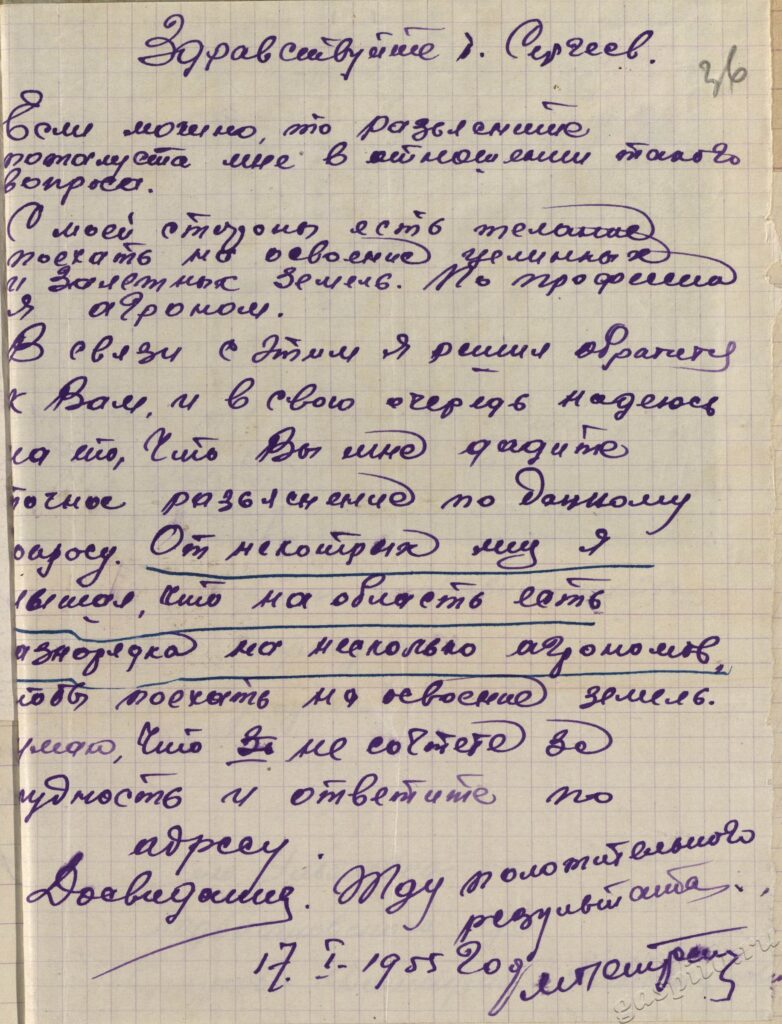 Здравствуйте т. Сергеев.
36
Если можно, то разьясните
пожалуста мне в отношении такого
вопроса.
С моей стороны есть желание
поехать на освоение целинных
и залежных земель. По профессии
я агроном.
В связи с этим я решил обратится
к Вам, и в свою очередь надеюсь
на то, что Вы мне дадите
точное разьяснение по данному
вопросу. От некотрых лиц я
слышал, что на область есть
разнорядка на несколько агрономов,
чтобы поехать на освоение земель.
Думаю, что не сочтете за
трудность и ответите по
адресу.
Досвидания. Жду положительного
результата.
17. I. 1955 год